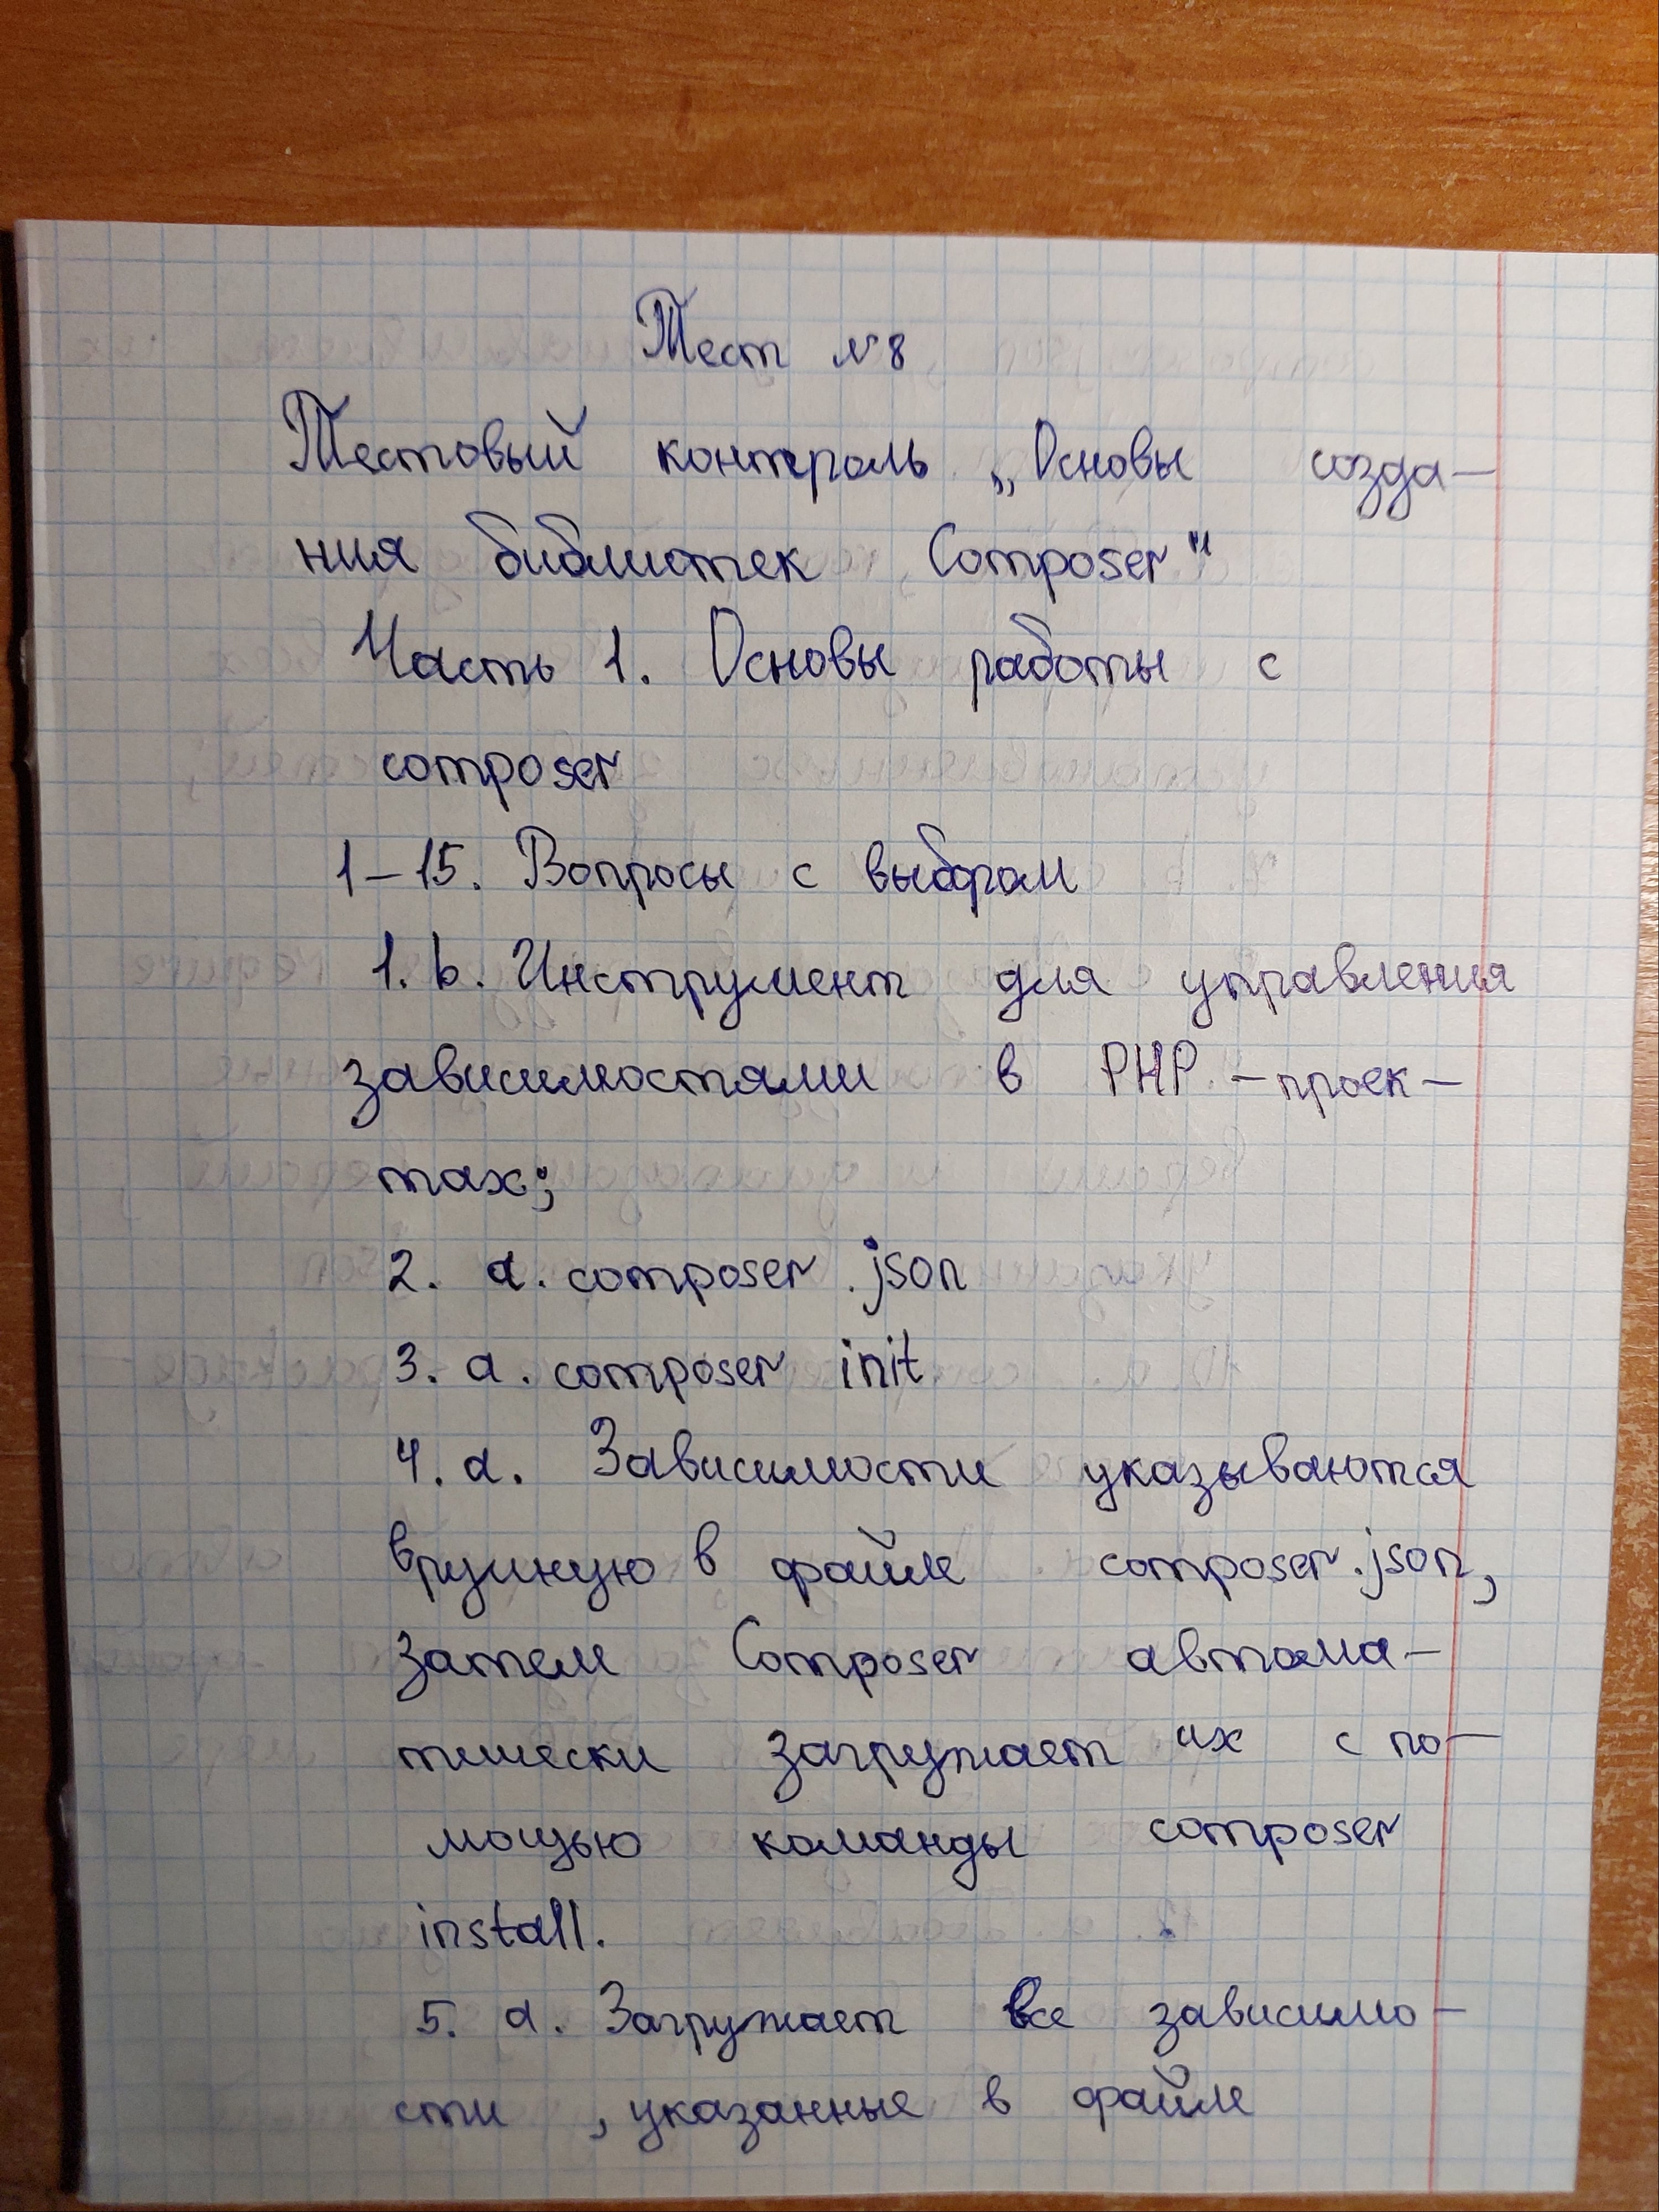 Тест №8
Тестовый контроль „Основы созда-
ния библиотек Composer"
Часть 1. Основы работы с
composer
1-15. Вопросы с выбором
1. b. Инструмент для управления
зависимостями в PHP-проек-
тах;
2. a. composer.json
3. a. composer init
4. a. Зависимости указываются
вручную в файле composer.json,
затем Composer автома-
тически загружает их с по-
мощью команды composer
install.
5. a. Загружает все зависимо-
сти, указанные в файле